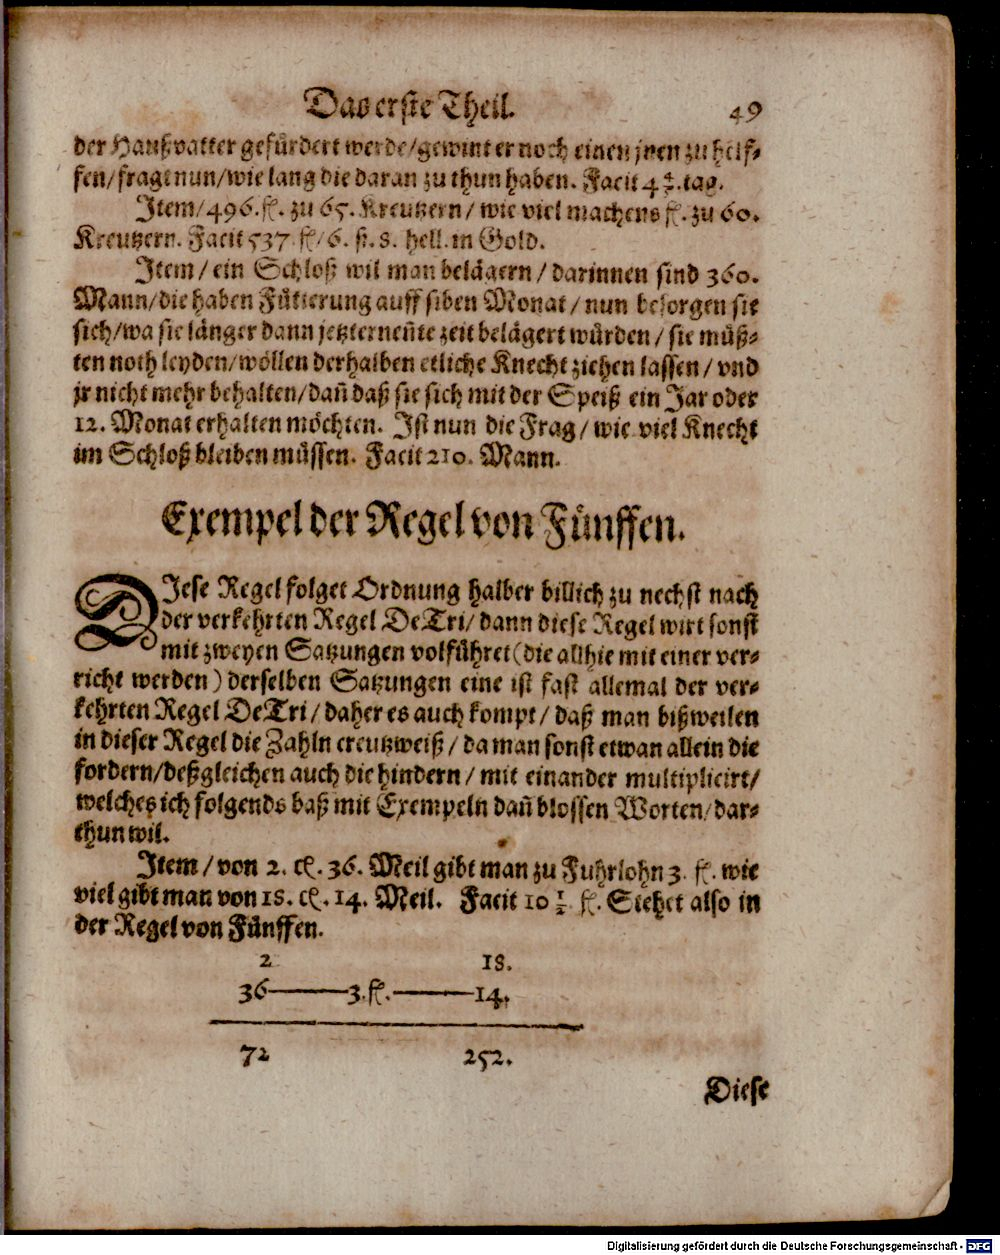 Das erste Theil. 49
der Haußvatter gefürdert werde/gewint er noch einen jnen zu helf-
fen/fragt nun/wie lang die daran zu thun haben. Facit 4 tag.
Item/496. fl. zu 65. Kreutzern/wie viel machens fl. zu 60.
Kreutzern. Facit 537 fl/6. ß. 8. hell. in Gold.
Item/ein Schloß wil man belägern/darinnen sind 360.
Mann/die haben Fütterung auff siben Monat/nun besorgen sie
sich/wa sie länger dann jetzterneñte zeit belägert würden/sie müß-
ten noth leyden/wöllen derhalben etliche Knecht ziehen lassen/vnd
jr nicht mehr behalten/dañ daß sie sich mit der Speiß ein Jar oder
12. Monat erhalten möchten. Ist nun die Frag/wie viel Knecht
im Schloß bleiben müssen. Facit 210. Mann.
Exempel der Regel von Fünffen.
DIese Regel folget Ordnung halber billich zu nechst nach
der verkehrten Regel DeTri/dann diese Regel wirt sonst
mit zweyen Satzungen volführet(die allhie mit einer ver-
richt werden) derselben Satzungen eine ist fast allemal der ver-
kehrten Regel DeTri/daher es auch kompt/daß man bißweilen
in dieser Regel die Zahln creutzweiß/da man sonst etwan allein die
fordern/deßgleichen auch die hindern/mit einander multiplicirt/
welches ich folgends baß mit Exempeln dañ blossen Worten/dar-
thun wil.
Item/von 2. cl. 36. Meil gibt man zu Fuhrlohn 3. fl. wie
viel gibt man von 18. cl. 14. Meil. Facit 10 1/2 fl. Stehet also in
der Regel von Fünffen.
2 18.
36——3.fl.——14.
72 252.
Diese
Digitalisierung gefördert durch die Deutsche Forschungsgemeinschaft - DFG